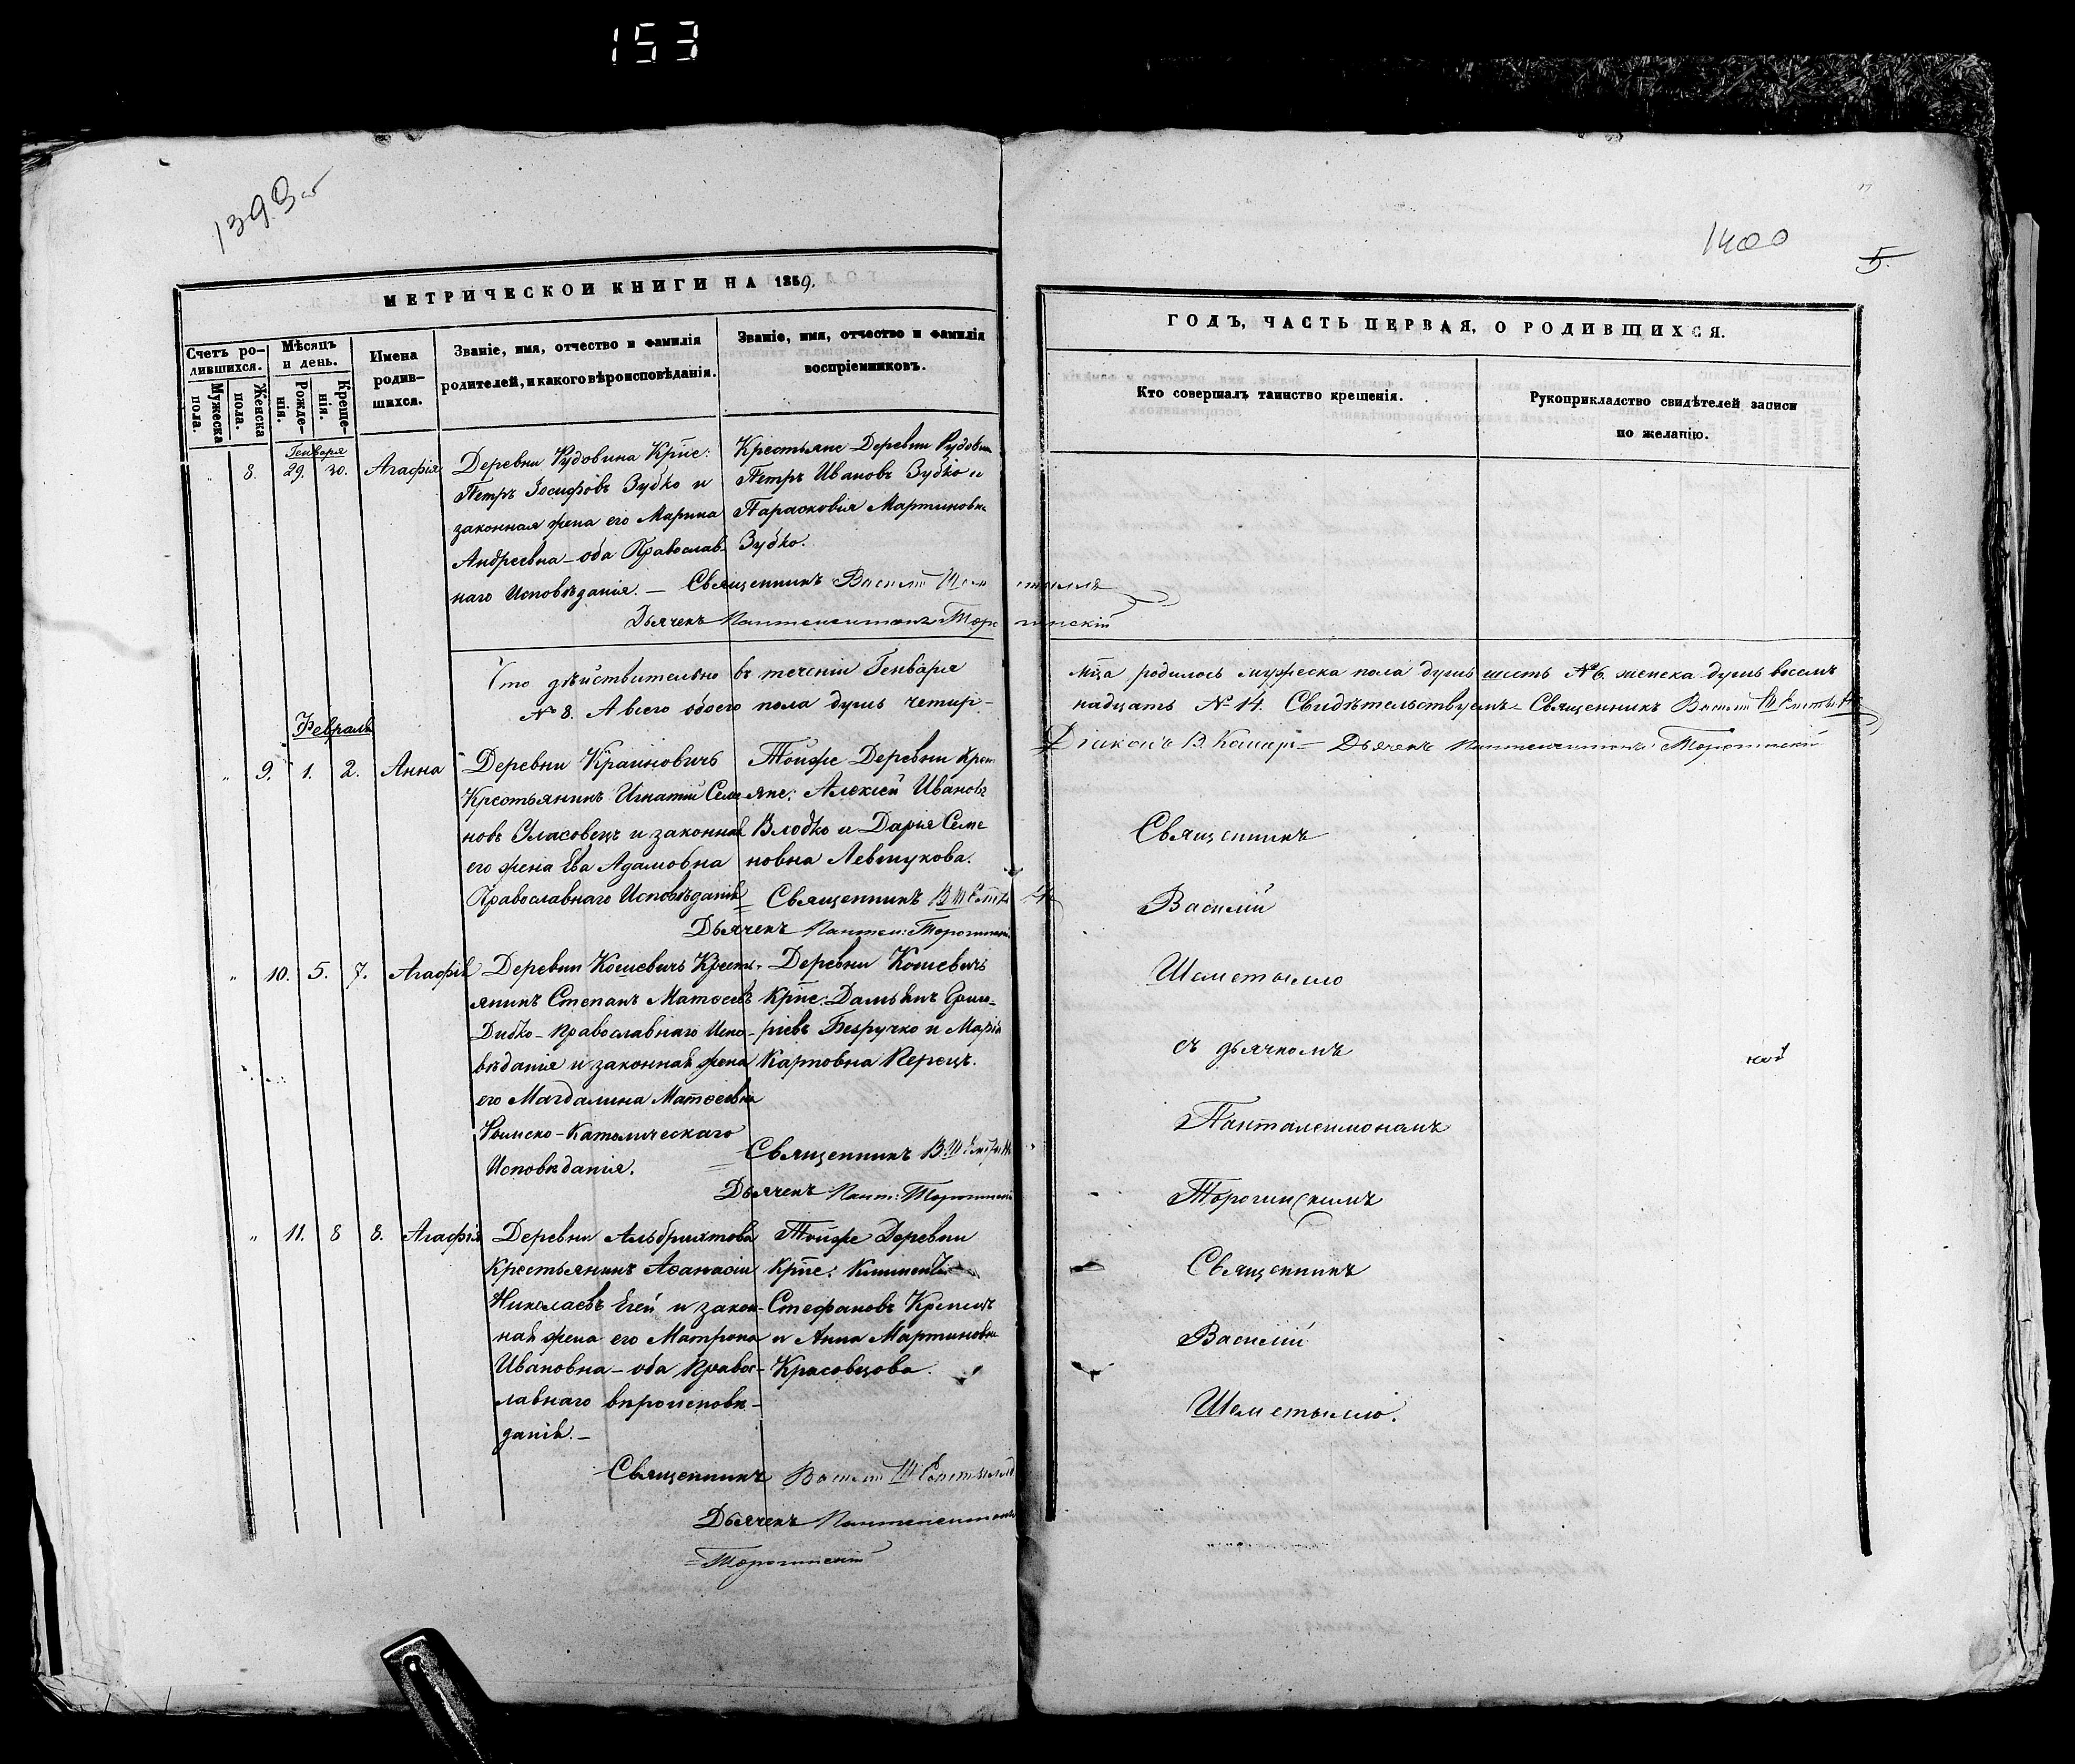 153
1393 об
1400
5.
МЕТРИЧЕСКОЙ КНИГИ НА 1859.
Счетъ ро-
дившихся.
Мужеска
пола.
Женска
пола.
Мѣсяцъ
и день.
Рожде-
нія.
Креще-
нія.
Имена
родив-
шихся.
Званіе, имя, отчество и фамилія
родителей, и какого вѣроисповѣданія.
Званіе, имя, отчество и фамилія
воспріемниковъ.
Генваря
" 8. 29. 30. Агафія
Деревни Рудовина Крпе:
Петръ Іосифовъ Зубко и
законная жена его Марина
Андреевна - оба Православ-
наго Исповѣданія. —
Крестьяне Деревни Рудовин
Петръ Ивановъ Зубко и
Парасковія Мартиновна
Зубко.
Священникъ Василій Шеметылло
Дьячекъ Пантелеимонъ Торогинскій
Что дѣйствительно въ теченіи Генваря
№ 8. А всего обоего пола душъ четыр-
Февраль
" 9. 1. 2. Анна
Деревни Крайновичъ
Крестьянинъ Игнатій Семе
новъ Уласовецъ и законная
его жена Ева Адамовна
Православнаго Исповѣданія
Тойже Деревни Крес
яне: Алексій Ивановъ
Влодко и Дарья Семе
новна Левчукова.
Священникъ В Шеметылло
Дьячекъ Пантел: Торогинскій
" 10. 5. 7. Агафія
Деревни Кошевичъ Кресть-
янинъ Степанъ Матѳеевъ
Дидко - Православнаго Испо-
вѣданія и законная жена
его Магдалина Матѳеевна
Римско-Католическаго
Исповѣданія.
Деревни Кошевичъ
Крпе: Даміанъ Григо-
ріевъ Безручко и Марія
Карповна Перецъ.
Священникъ В: Шеметылло
Дьячекъ Пант: Торогинскій
" 11. 8 8. Агафія
Деревни Альбрихтова
Крестьянинъ Аѳанасій
Николаевъ Егей и закон-
ная жена его Матрона
Ивановна - оба Правос-
лавнаго вѣроисповѣ-
данія. —
Тойже Деревни
Крпе: Климентій
Стефановъ Крепецъ
и Анна Мартиновна
Красовцова.
Священникъ Василій Шеметылло
Дьячекъ Пантелеимонъ
Торогинскій
ГОДЪ, ЧАСТЬ ПЕРВАЯ, О РОДИВШИХСЯ.
Кто совершалъ таинство крещенія.
Рукоприкладство свидѣтелей записи
по желанію.
мца родилось мужеска пола душъ шесть № 6. женска душъ восемъ
надцать № 14. Свидѣтельствуемъ - Священникъ Василій Шеметылло
Діаконъ В. Комаръ = Дьячекъ Пантелеимонъ Торогинскій
Священникъ
Василій
Шеметылло
съ дьячкомъ
Панталеимономъ
Торогинскимъ
Священникъ
Василій
Шеметылло.